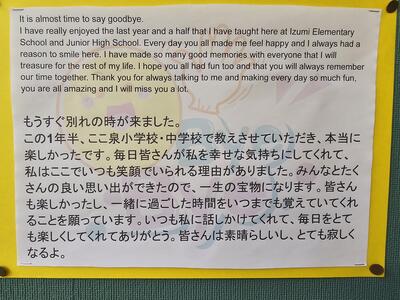 It is almost time to say goodbye.
I have really enjoyed the last year and a half that I have taught here at Izumi Elementary
School and Junior High School. Every day you all made me feel happy and I always had a
reason to smile here. I have made so many good memories with everyone that I will
treasure for the rest of my life. I hope you all had fun too and that you will always remember
our time together. Thank you for always talking to me and making every day so much fun,
you are all amazing and I will miss you a lot.
もうすぐ別れの時が来ました。
この1年半、ここ泉小学校・中学校で教えさせていただき、本当に
楽しかったです。毎日皆さんが私を幸せな気持ちにしてくれて、
私はここでいつも笑顔でいられる理由がありました。みんなとたく
さんの良い思い出ができたので、一生の宝物になります。皆さん
も楽しかったし、一緒に過ごした時間をいつまでも覚えていてくれ
ることを願っています。いつも私に話しかけてくれて、毎日をとて
も楽しくしてくれてありがとう。皆さんは素晴らしいし、とても寂しく
なるよ。